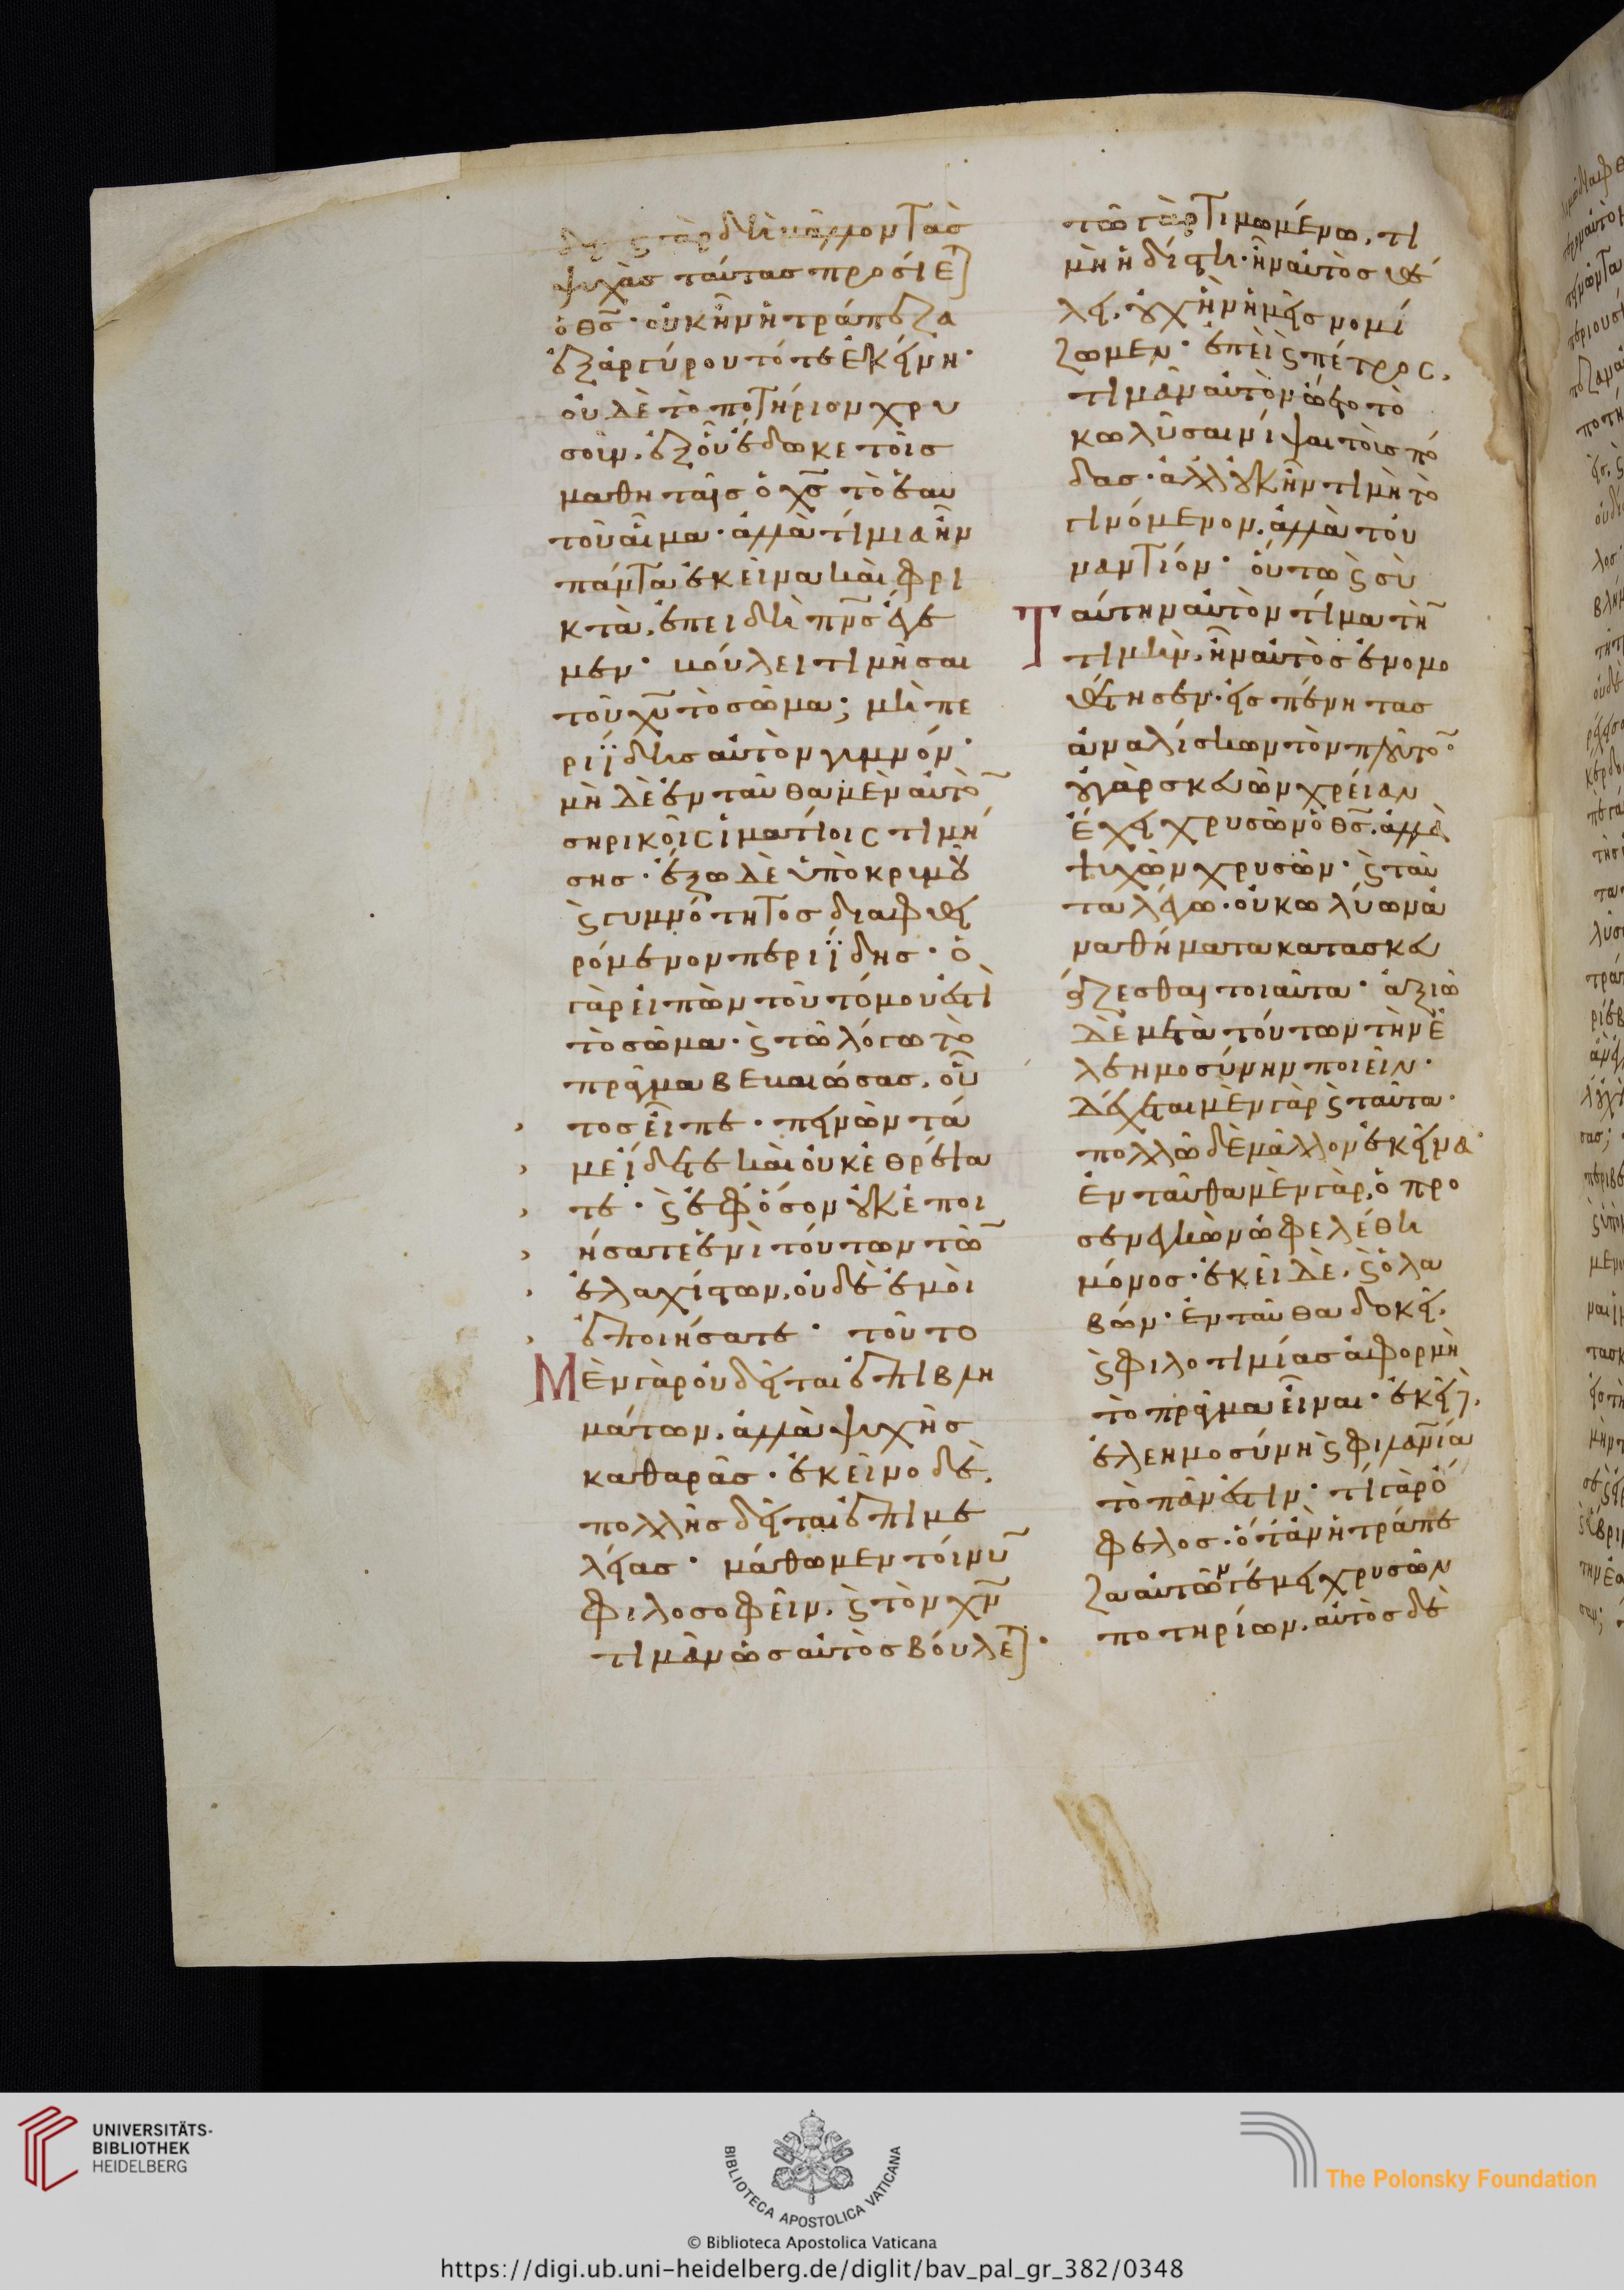 γὰρ διὰ μᾶλλον τὰς
ψυχὰς ταύτας προσίε)
ὁ θς̅· οὐκ ἦν ἡ τράπεζα
ἐξ ἀργύρου τότε ἐκείνη·
οὐδὲ τὸ ποτήριον χρυ
σοῦν, ἐξ οὗ ἔδωκε τοῖς
μαθηταῖς ὁ χς̅ τὸ ἑαυ
τοῦ αἷμα· ἀλλὰ τίμια ἦν
πάντα ἐκεῖνα καὶ φρι
κτά, ἐπειδὴ πνς̅ ἔγε
μεν· βούλει τιμῆσαι
τοῦ χυ̅ τὸ σῶμα; μὴ πε
ριΐδης αὐτὸν γυμνόν·
μὴ δὲ ἐνταῦθα μὲν αὐτὸ̅
σηρικοῖς ἱματίοις τιμή
σης· ἔξω δὲ ὑπὸ κρυμοῦ
ϛ γυμνότητος διαφθει
ρόμενον περιΐδης· ὁ
γὰρ εἰπὼν τοῦτό μου ἐστὶ
τὸ σῶμα· ϛ τῷ λόγω τὸ
πρᾶγμα βεβαιώσας, οὗ
τος εἶπε· πεινῶντά
με εἴδετε καὶ οὐκ ἐθρέψα
τε· ϛ ἐφ' ὅσον οὐκ ἐποι
ήσατε ἑνὶ τούτων τῶ̅
ἐλαχίστων, οὐδὲ ἐμοὶ
ἐποιήσατε· τοῦτο
Μὲν γὰρ οὐ δεῖται ἐπιβλη
μάτων, ἀλλὰ ψυχῆς
καθαρᾶς· ἐκεῖνο δὲ,
πολλῆς δεῖται ἐπιμε
λείας· μάθωμεν τοίνυ̅
φιλοσοφεῖν, ϛ τὸν χν̅
τιμᾶν ὡς αὐτὸς βούλε)·
τῶ γὰρ τιμωμένω, τι
μὴ ἡδίστη· ἣν αὐτὸς θέ
λει, οὐχ ἣν ἡμεῖς νομί
ζωμεν· ἐπεὶ ϛ πέτρος,
τιμᾶν αὐτὸν ὤετο τὸ
κωλῦσαι νίψαι τοὺς πό
δας· ἀλλ' οὐκ ἦν τιμὴ τὸ
γινόμενον, ἀλλὰ τοὐ
ναντίον· οὕτω ϛ σὺ
Ταύτην αὐτὸν τίμα τὴ̅
τιμὴν, ἣν αὐτὸς ἐνομο
θέτησεν· εἰς πένητας
ἀναλίσκων τὸν πλοῦτο̅·
οὐ γὰρ σκευῶν χρείαν
ἔχει χρυσῶν ὁ θς̅, ἀλλὰ
ψυχῶν χρυσῶν· ϛ ταῦ
τα λέγω· οὐ κωλύων ἀ
ναθήματα κατασκευ
άζεσθαι τοιαῦτα· ἀξιῶ
δὲ μετὰ τούτων τὴν ἐ
λεημοσύνην ποιεῖν·
δέχεται μὲν γὰρ ϛ ταῦτα·
πολλῶ δὲ μᾶλλον ἐκεῖνα·
ἐνταῦθα μὲν γὰρ, ὁ προ
σενεγκὼν ὠφελέθη
μόνος· ἐκεῖ δὲ, ϛ ὁ λα
βών· ἐνταῦθα δοκεῖ,
ϛ φιλοτιμίας ἀφορμὴ
τὸ πρᾶγμα εἶναι· ἐκεῖ,
ἐλεημοσύνη ϛ φιλανι̅α
τὸ πᾶν ἐστιν· τί γὰρ ὄ
φελος· ὅταν ἡ τράπε
ζα αὐτῶ γέμει χρυσῶν
ποτηρίων, αὐτὸς δὲ
UNIVERSITÄTS-
BIBLIOTHEK
HEIDELBERG
BIBLIOTECA APOSTOLICA VATICANA
© Biblioteca Apostolica Vaticana
The Polonsky Foundation
https://digi.ub.uni-heidelberg.de/diglit/bav_pal_gr_382/0348